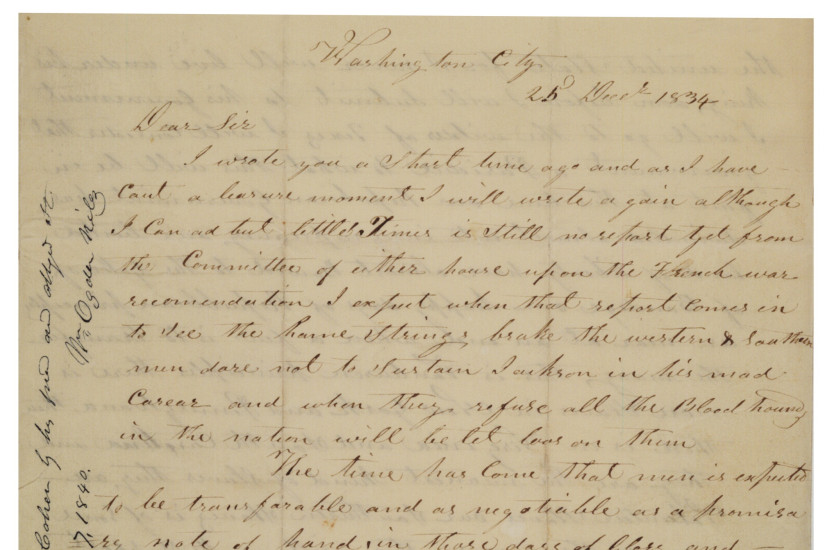 Washington City
25 Decr 1834
Dear Sir
I wrote you a Short time ago and as I have
caut a leasure moment I will wrote a gain although
I Can ad but little Times is Still no report yet from
the Committee of either house upon the French war
recomendation I expect when that report Comes in
to See the hame Strings brake the western & Southern
men dare not to Sustain Jackson in his mad
Carear and when they refuse all the Blood hounds
in the nation will be let loos on them
The time has Come that men is expected
to be transfarable and as negotiable as a promisa
ry note of hand, in those days of Glory and
Cohen of his and obliged
Wm Ogden Niles
7, 1840.